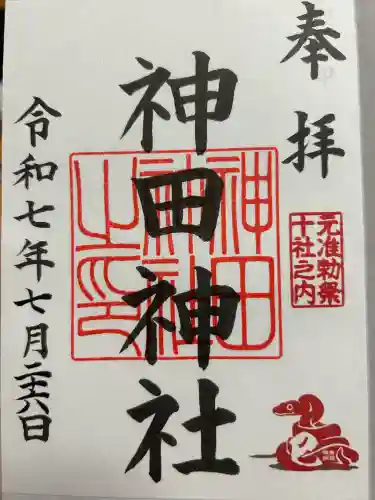 奉拝
元准勅祭
十社之内
神田神社
神田
神社
之印
令和七年七月二十六日
巳